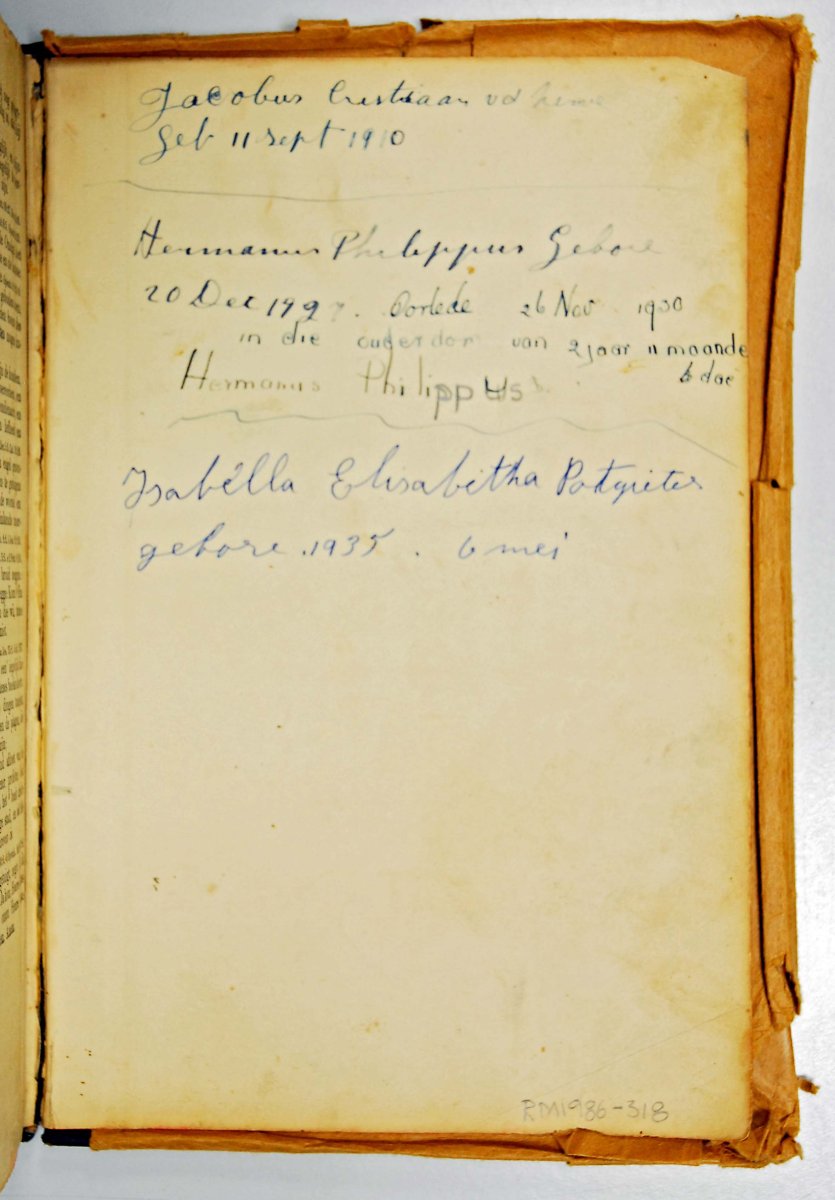 Jacobus Cristiaan vd
Geb 11 sept 1910
Hermanus Philippus Gebore
20 Dec 1927. Oorlede 26 Nov 1930
in die ouderdom van 2 jaar 11 maande
6 dae
Hermanus Philippus
Isabélla Elisabitha Potgieter
gebore .1935 . 6 mei
RM1986-318